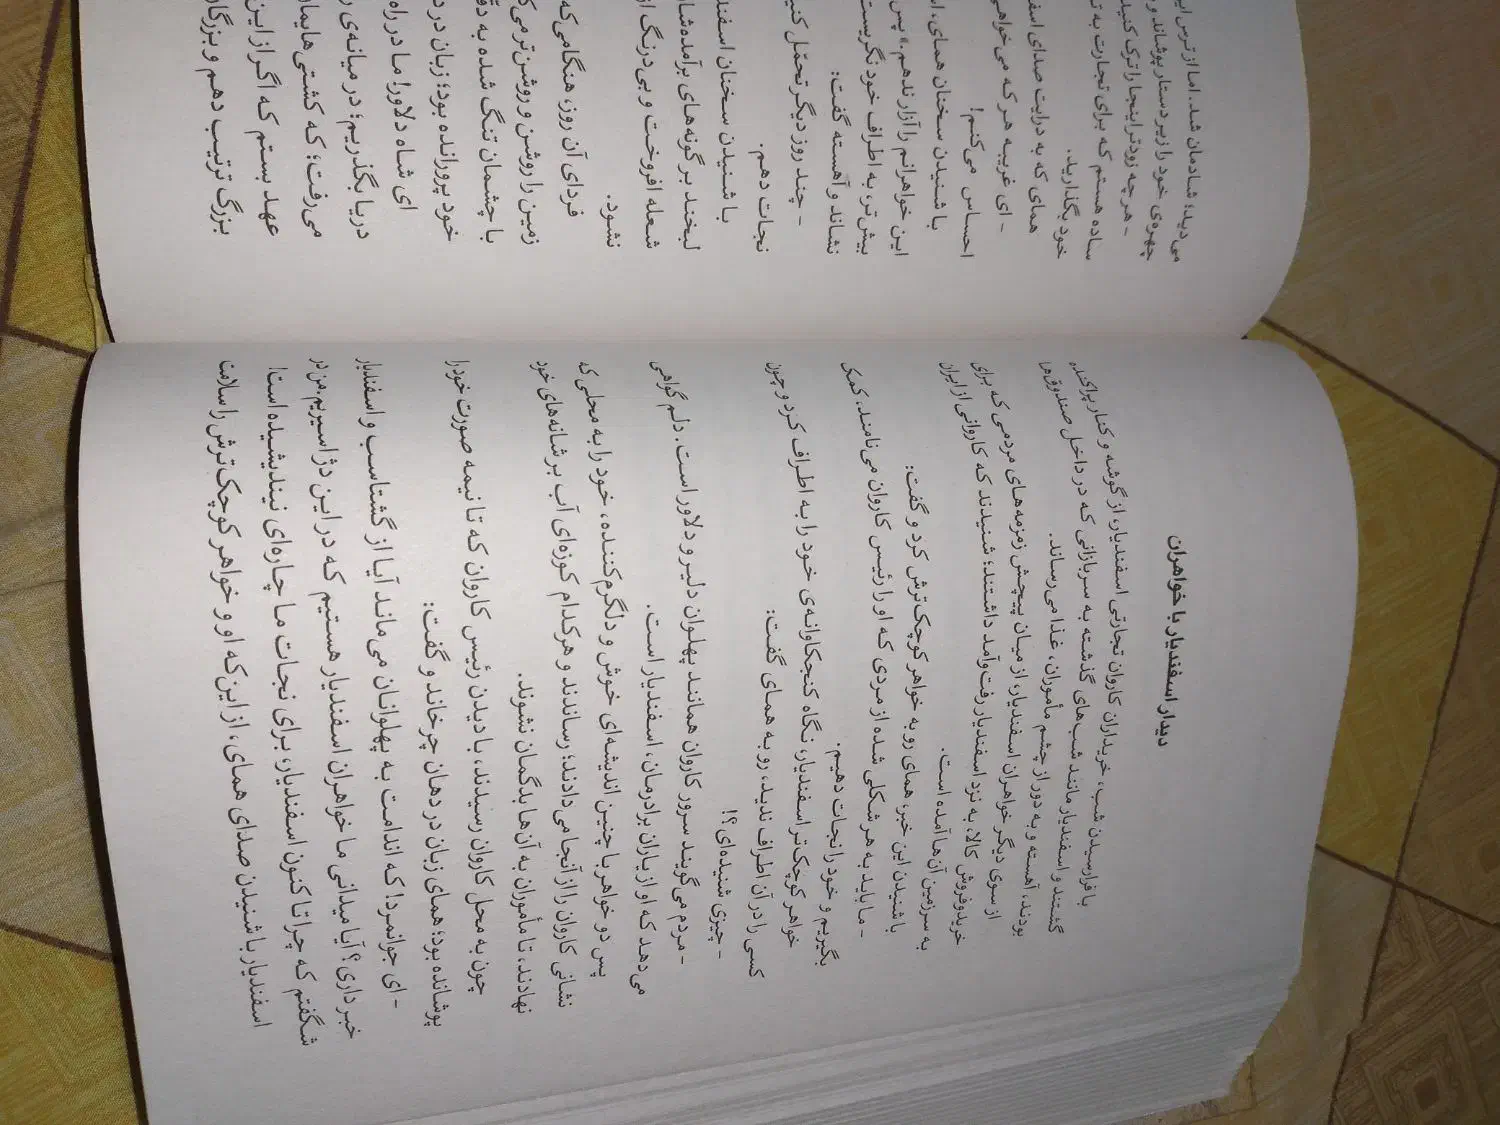 دیدار اسفندیار با خواهران
با فرارسیدن شب، خریداران کاروان تجارتی اسفندیار، از گوشه و کنار پراکنده
گشتند و اسفندیار مانند شب‌های گذشته به سربازانی که در داخل صندوق‌ها
بودند، آهسته و به دور از چشم مأموران، غذا می‌رساند.
از سوی دیگر خواهران اسفندیار، از میان پیچش زمزمه‌های مردمی که برای
خریدوفروش کالا، به نزد اسفندیار رفت‌وآمد داشتند؛ شنیدند که کاروانی از ایران
به سرزمین آن‌ها آمده است.
با شنیدن این خبر، همای رو به خواهر کوچک‌ترش کرد و گفت:
- ما باید به هر شکلی شده از مردی که او را رئیس کاروان می‌نامند، کمک
بگیریم و خود را نجات دهیم.
خواهر کوچک‌تر اسفندیار، نگاه کنجکاوانه‌ی خود را به اطراف کرد و چون
کسی را در آن اطراف ندید، رو به همای گفت:
- چیزی شنیده‌ای؟!
- مردم می‌گویند سرور کاروان همانند پهلوان دلیر و دلاور است. دلم گواهی
می‌دهد که او از یاران برادرمان، اسفندیار است.
پس دو خواهر با چنین اندیشه‌ای خوش و دلگرم‌کننده، خود را به محلی که
نشانی کاروان را از آنجا می‌دادند؛ رساندند و هرکدام کوزه‌ای آب بر شانه‌های خود
نهادند، تا مأموران به آن‌ها بدگمان نشوند.
چون به محل کاروان رسیدند، با دیدن رئیس کاروان که تا نیمه صورت خود را
پوشانده بود؛ همای زبان در دهان چرخاند و گفت:
- ای جوانمرد! که اندامت به پهلوانان می‌ماند آیا از گشتاسب و اسفندیار
خبر داری؟ آیا میدانی ما خواهران اسفندیار هستیم که در این دژ اسیریم. من در
شگفتم که چرا تا کنون اسفندیار، برای نجات ما چاره‌ای نیندیشیده است!
اسفندیار با شنیدن صدای همای، از این‌که او و خواهر کوچک‌ترش را سلامت
می‌دید؛ شادمان شد. اما از ترس
چهره‌ی خود را زیر دستار پوشاند و
- هرچه زودتر اینجا را ترک کنید
ساده هستم که برای تجارت به
خود بگذارید.
همای که به درایت صدای
- ای غریبه هر که می‌خواهی
احساس می‌کنم!
با شنیدن سخنان همای،
این خواهرانم را آزار ندهم.» پس
بیش‌تر، به اطراف خود نگریست
نشاند و آهسته گفت:
- چند روز دیگر تحمّل کنید
نجات دهم.
با شنیدن سخنان
لبخند بر گونه‌های برآمده
شعله افروخت و بی‌درنگ از
نشود.
فردای آن روز، هنگامی که
زمین را روشن و روشن‌تر
با چشمان تنگ شده به
خود پرورانده بود؛ زبان در
ای شاه دلاور! ما در راه
دریا بگذریم؛ در میانه‌ی
می‌رفت؛ که کشتی‌هایمان
عهد بستم که اگر از این
بزرگ ترتیب دهم و بزرگان